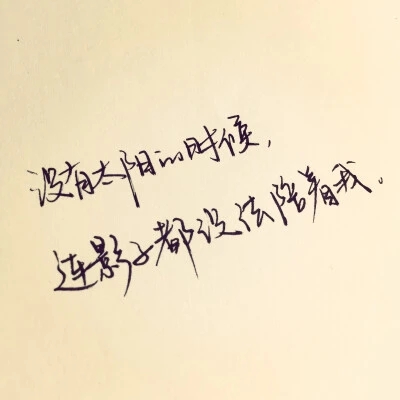 没有太阳的时候，
连影子都没法陪着我。